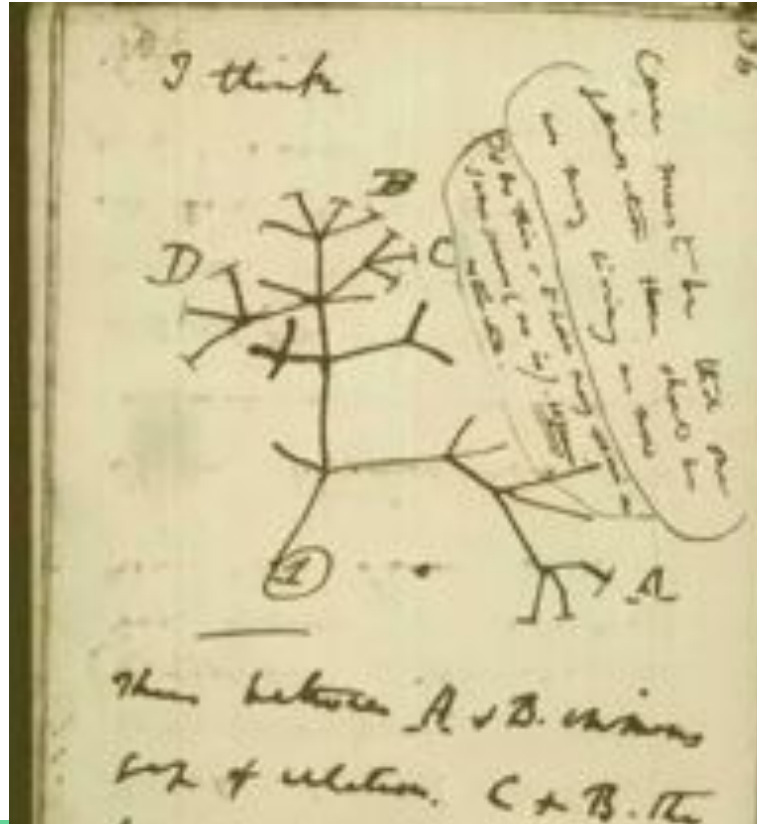 36
I think
Case must be that one
generation then should be
as many living as now
To do this & to have many species in
same genus (as is). requires
extinction.
B
D
C
1
A
Thus between A & B. immens
gap of relation. C & B. The